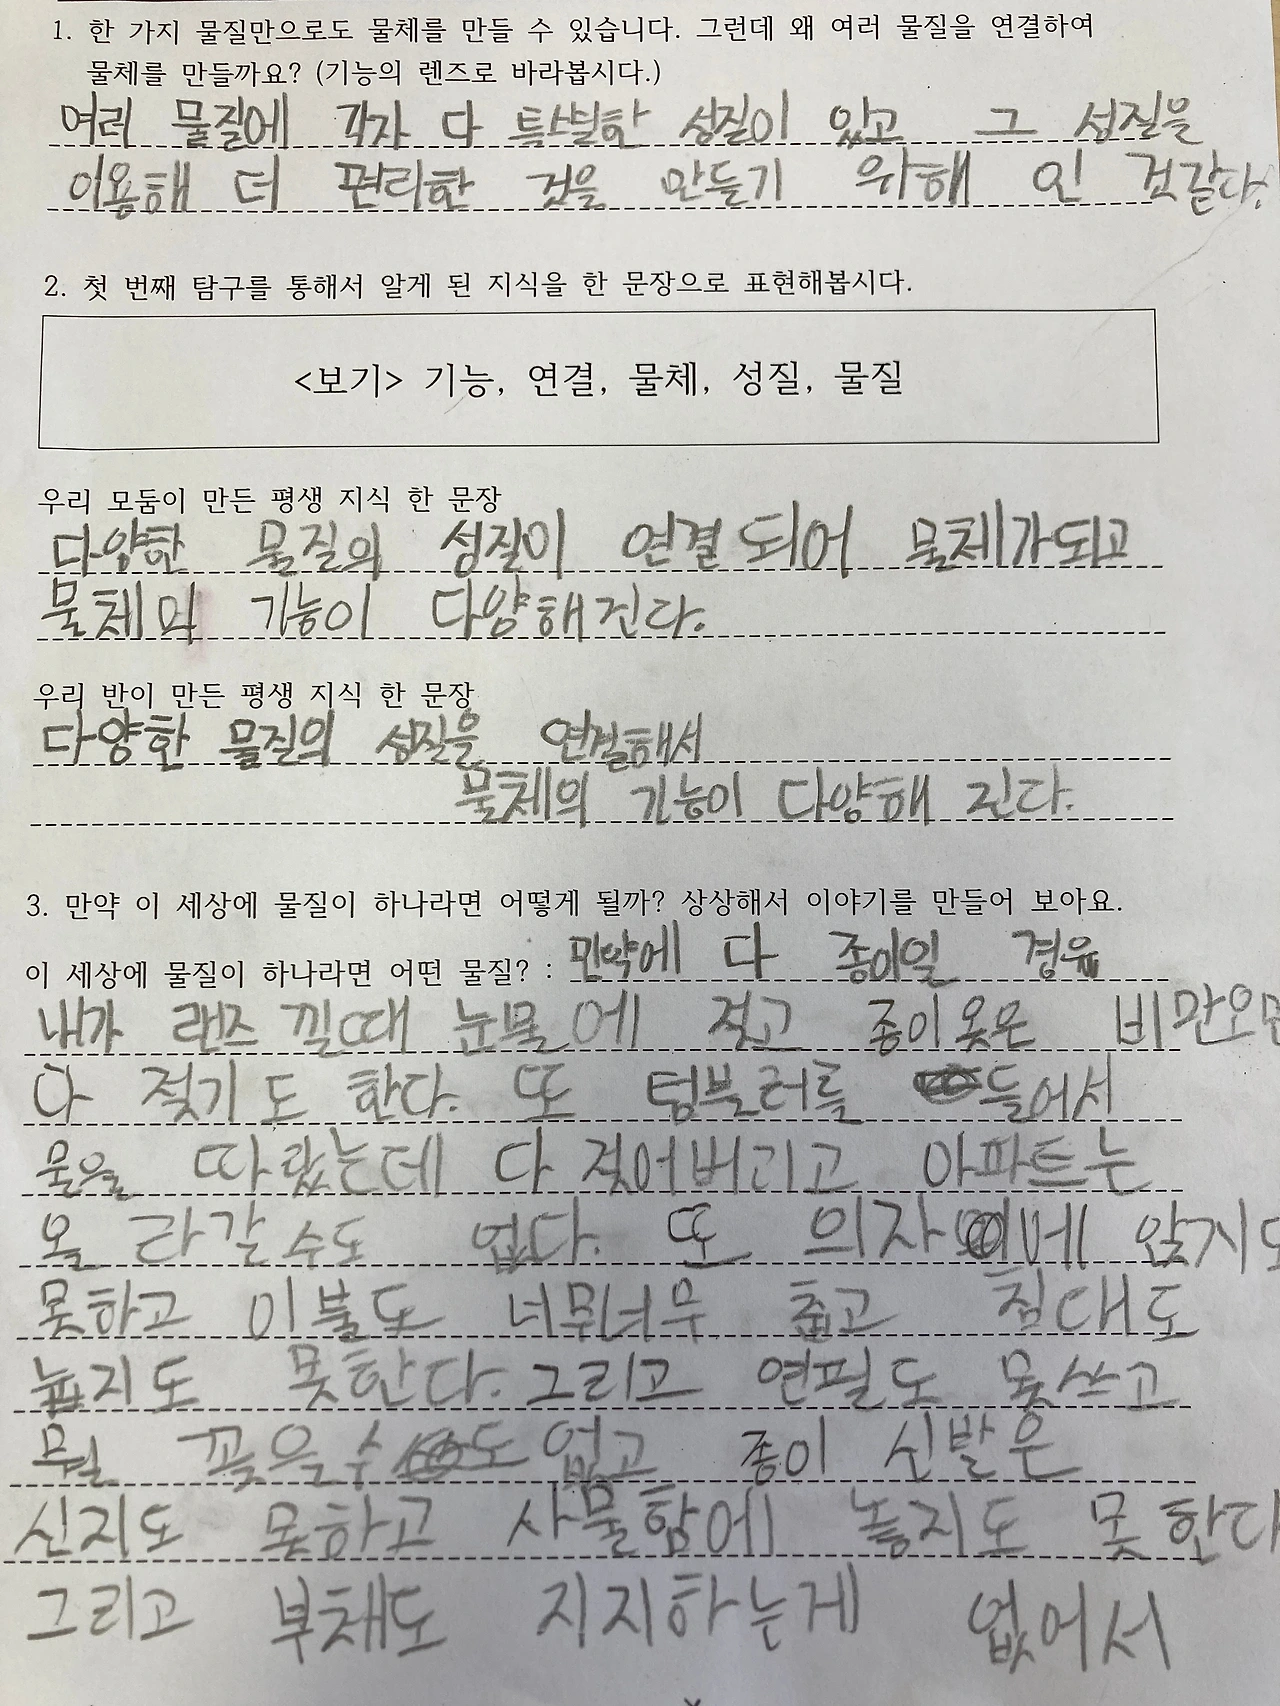 1. 한 가지 물질만으로도 물체를 만들 수 있습니다. 그런데 왜 여러 물질을 연결하여
물체를 만들까요? (기능의 렌즈로 바라봅시다.)
여러 물질에 각자 다 특별한 성질이 있고 그 성질을
이용해 더 편리한 것을 만들기 위해 인 것같다.
2. 첫 번째 탐구를 통해서 알게 된 지식을 한 문장으로 표현해봅시다.
<보기> 기능, 연결, 물체, 성질, 물질
우리 모둠이 만든 평생 지식 한 문장
다양한 물질의 성질이 연결되어 물체가되고
물체의 기능이 다양해진다.
우리 반이 만든 평생 지식 한 문장
다양한 물질의 성질을 연결해서
물체의 기능이 다양해 진다.
3. 만약 이 세상에 물질이 하나라면 어떻게 될까? 상상해서 이야기를 만들어 보아요.
이 세상에 물질이 하나라면 어떤 물질? : 만약에 다 종이일 경우
내가 랜즈 낄때 눈물에 젖고 종이옷은 비만오면
다 젖기도 한다. 또 텀블러를 들어서
물을 따랐는데 다 젖어버리고 아파트는
올라갈 수도 없다. 또 의자에 앉지도
못하고 이불도 너뮈너무 춥고 침대도
눕지도 못한다. 그리고 연필도 못쓰고
뭘 꽂을수도 없고 종이 신발은
신지도 못하고 사물함에 놓지도 못한다
그리고 부채도 지지하는게 없어서